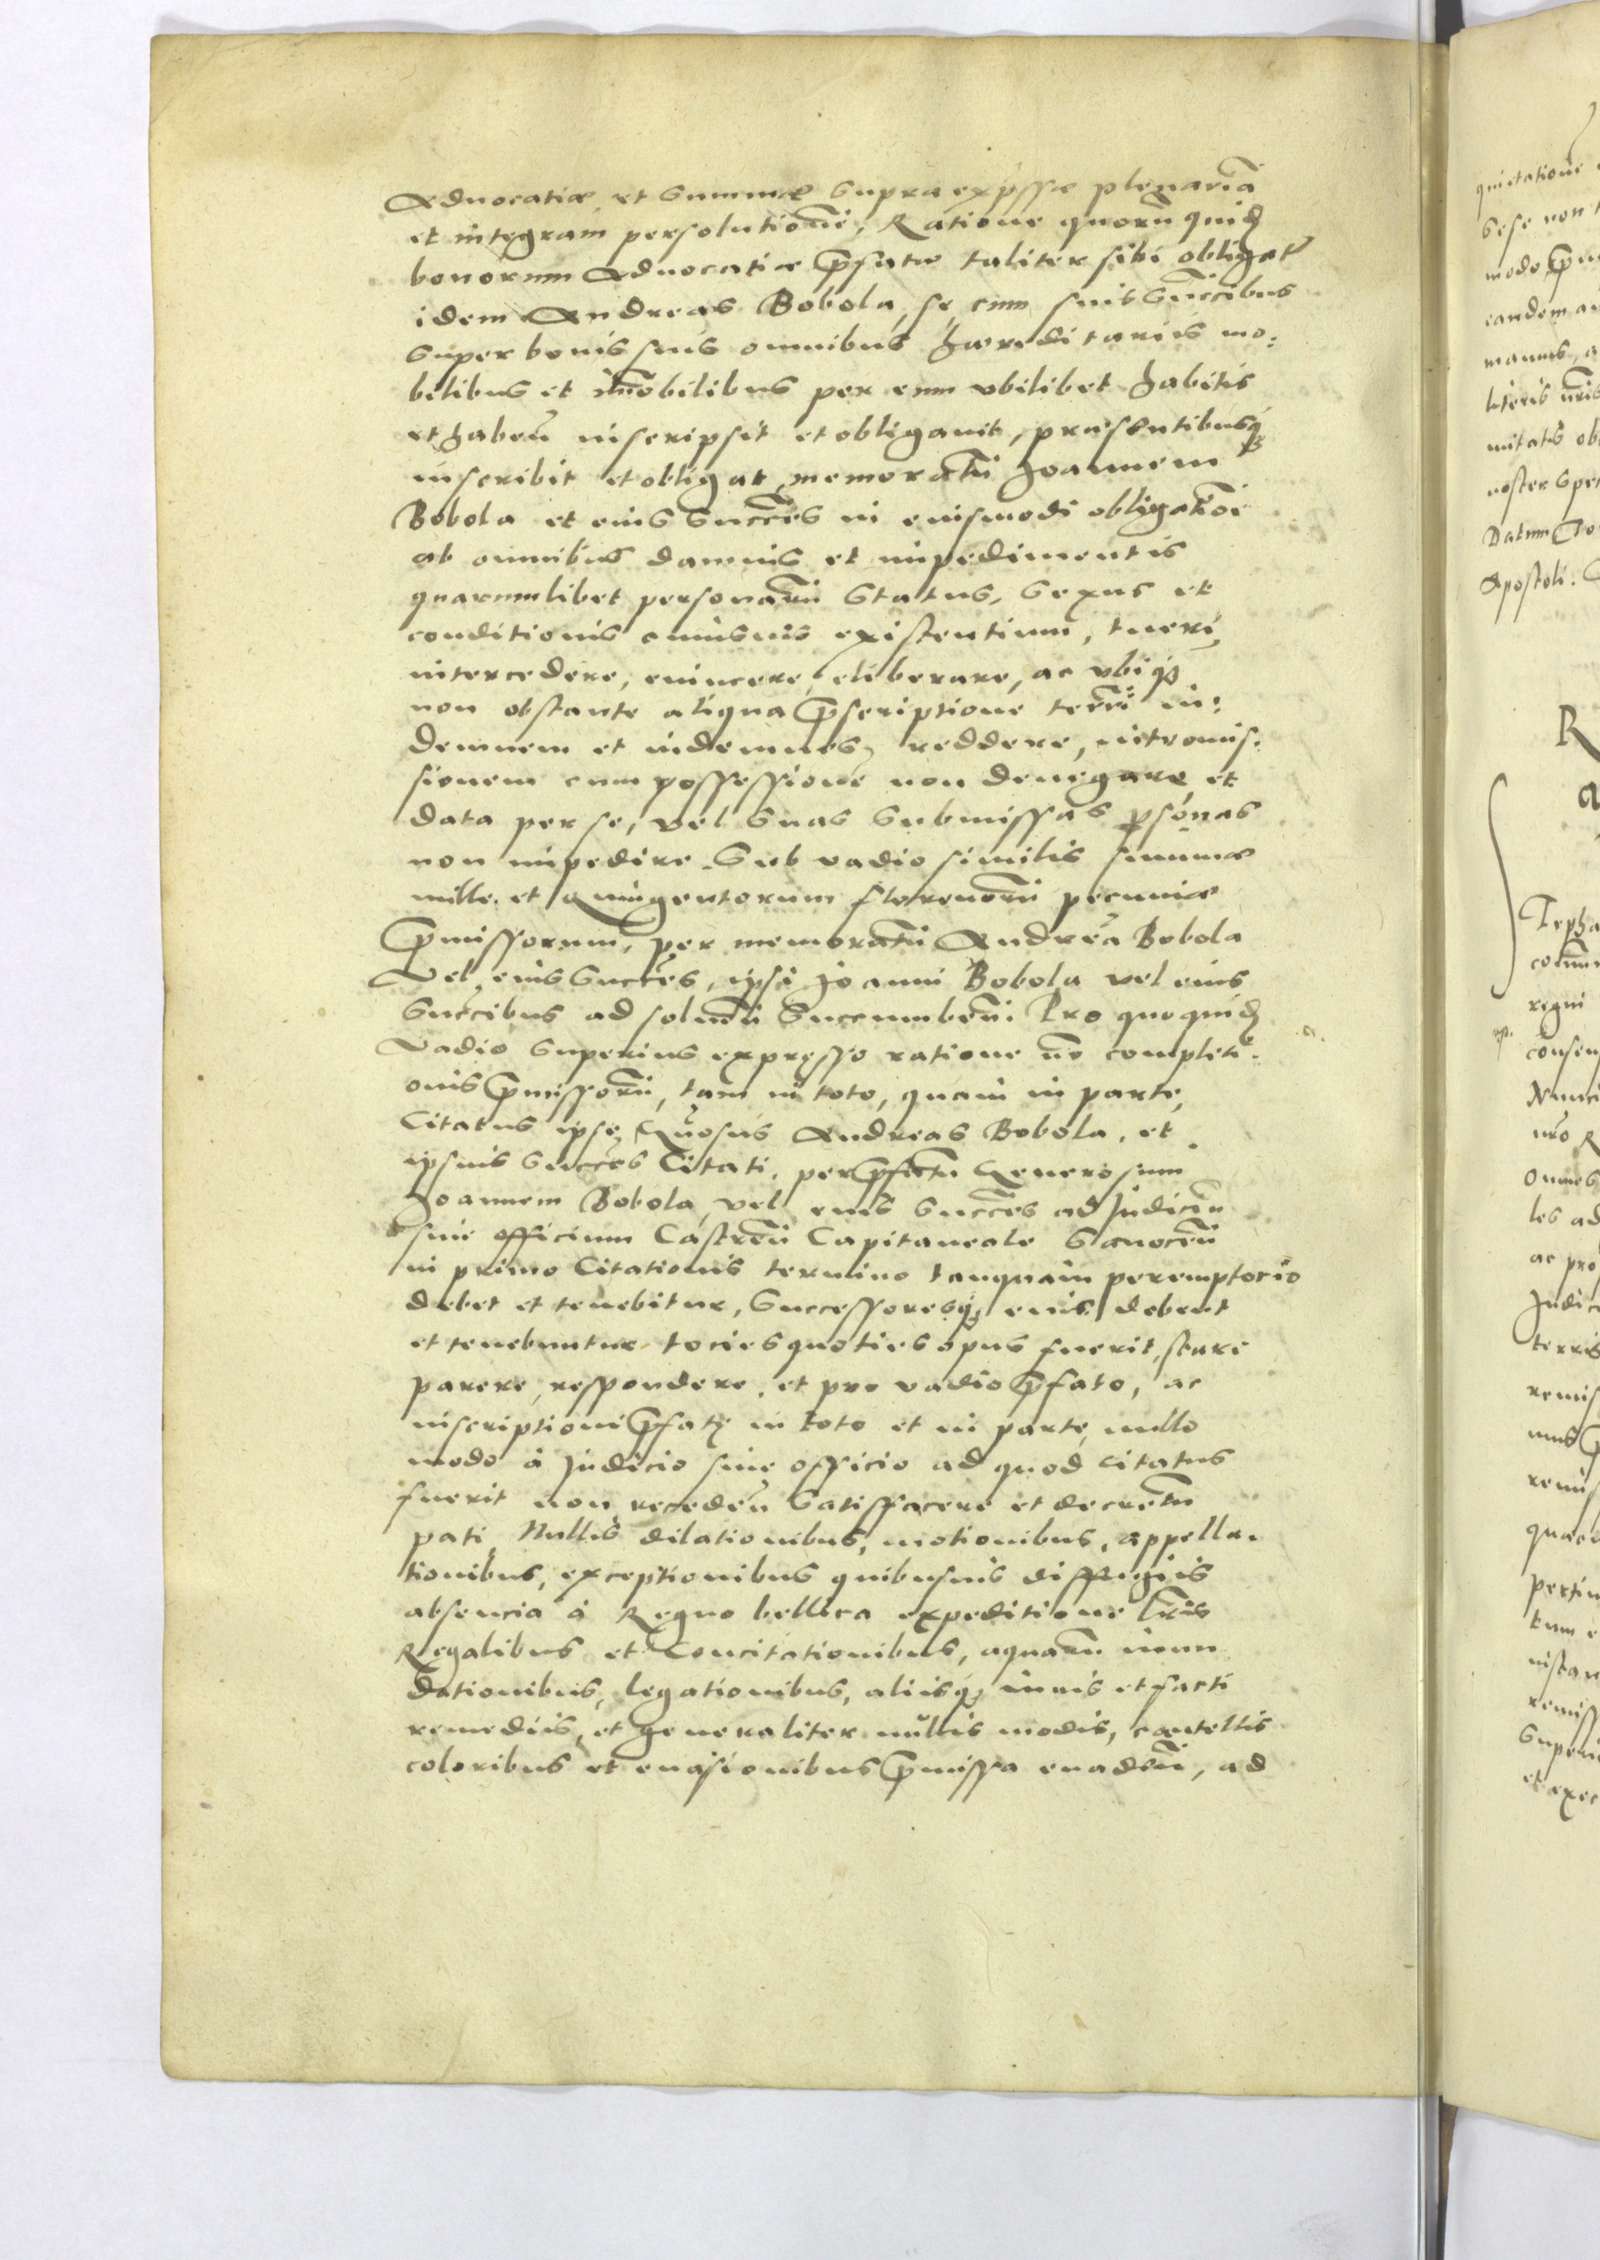 Advocatiæ, et summæ supra expssæ plenariã
et integram persolutionẽ, Ratione quorũ quid
bonorum Advocatiæ prefatæ taliter sibi obligat
idem Andreas Bobola, se cum suis succibus
super bonis suis omnibus hæreditariis mo:
bilibus et im̃obilibus per eum vbilibet habitis
et habeñ inscripsit et obligauit, præsentibusq;
inscribit et obligat, memoratũ Joannem
Bobola et eius succẽs in eiusmodi obligatiõe
ab omnibus damnis et impedimentis
quarumlibet personarũ status, sexus et
conditionis cuiusuis existentium, tueri,
intercedere, euincere, eliberare, ac vbiq;
non obstante aliqua prescriptione terrĩ in:
demnem et indemnes, reddere, intromis:
sionem cum possessione non denegare, et
data per se, vel suas submissas psonas
non impedire. Sub vadio similis summæ
mille et quingentorum florenorũ pecuniæ
premissorum, per memoratũ Andreã Bobola
Vel eius succẽs, ipsi Joanni Bobola vel eius
succibus ad soluẽñ succumbeñ. Pro quo quid
Vadio superius expresso ratione nõ completi:
onis premissorũ, tam in toto, quam in parte,
Citatus ipse Gñosus Andreas Bobola, et
ipsius succẽs Citati, per prefatũ Generosum
Joannem Bobola, vel eius succẽs ad Judiciũ
siue officium Castreñ Capitaneale Sanoceñ
in primo Citationis termino tanquam peremptorio
debet et tenebitur, Successoresq; eius debent
et tenebuntur toties quoties opus fuerit, stare
parere, respondere, et pro vadio prefato, ac
inscriptioni prefatę in toto et in parte, nullo
modo à Judicio siue officio ad quod citatus
fuerit non recedeñ satisfacere et decretũ
pati. Nullis dilationibus, motionibus, appella:
tionibus, exceptionibus quibusuis diffugiis
absencia à Regno bellica expeditione lris
Regalibus et Concitationibus, aquarũ inun
dationibus, legationibus, aliisq; iuris et facti
remediis, et generaliter nullis modis, cautellis
coloribus et euasionibus premissa euadeñ, ad